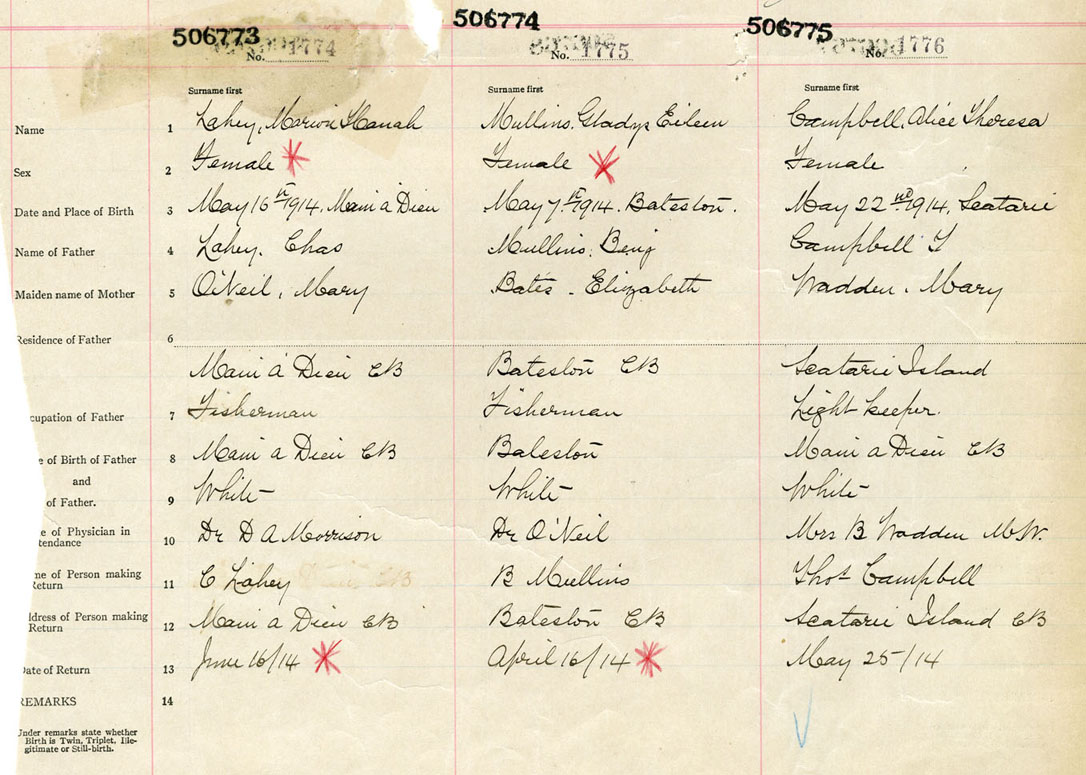 506773 506774 506775
No. 1774 No. 1775 No. 1776
Surname first Surname first Surname first
Name 1 Lahey, Marion Hanah Mullins, Gladys Eileen Campbell, Alice Theresa
Sex 2 Female Female Female
Date and Place of Birth 3 May 16th 1914, Main à Dieu May 7th 1914. Bateston. May 22nd 1914, Scatarie
Name of Father 4 Lahey, Chas Mullins, Benj Campbell T
Maiden name of Mother 5 O'Neil, Mary Bates, Elizabeth Wadden, Mary
Residence of Father 6
Main à Dieu CB Bateston CB Scatarie Island
cupation of Father 7 Fisherman Fisherman Light keeper.
e of Birth of Father 8 Main a Dieu CB Bateston Main a Dieu CB
and
of Father. 9 White White White
e of Physician in
tendance 10 Dr D A Morrison Dr O'Neil Mrs B Wadden M.W.
me of Person making
Return 11 C Lahey B Mullins Thos Campbell
ddress of Person making
Return 12 Main a Dieu CB Bateston CB Scatarie Island CB
Date of Return 13 June 16/14 April 16/14 May 25/14
REMARKS 14
Under remarks state whether
Birth is Twin, Triplet, Ille-
gitimate or Still-birth.